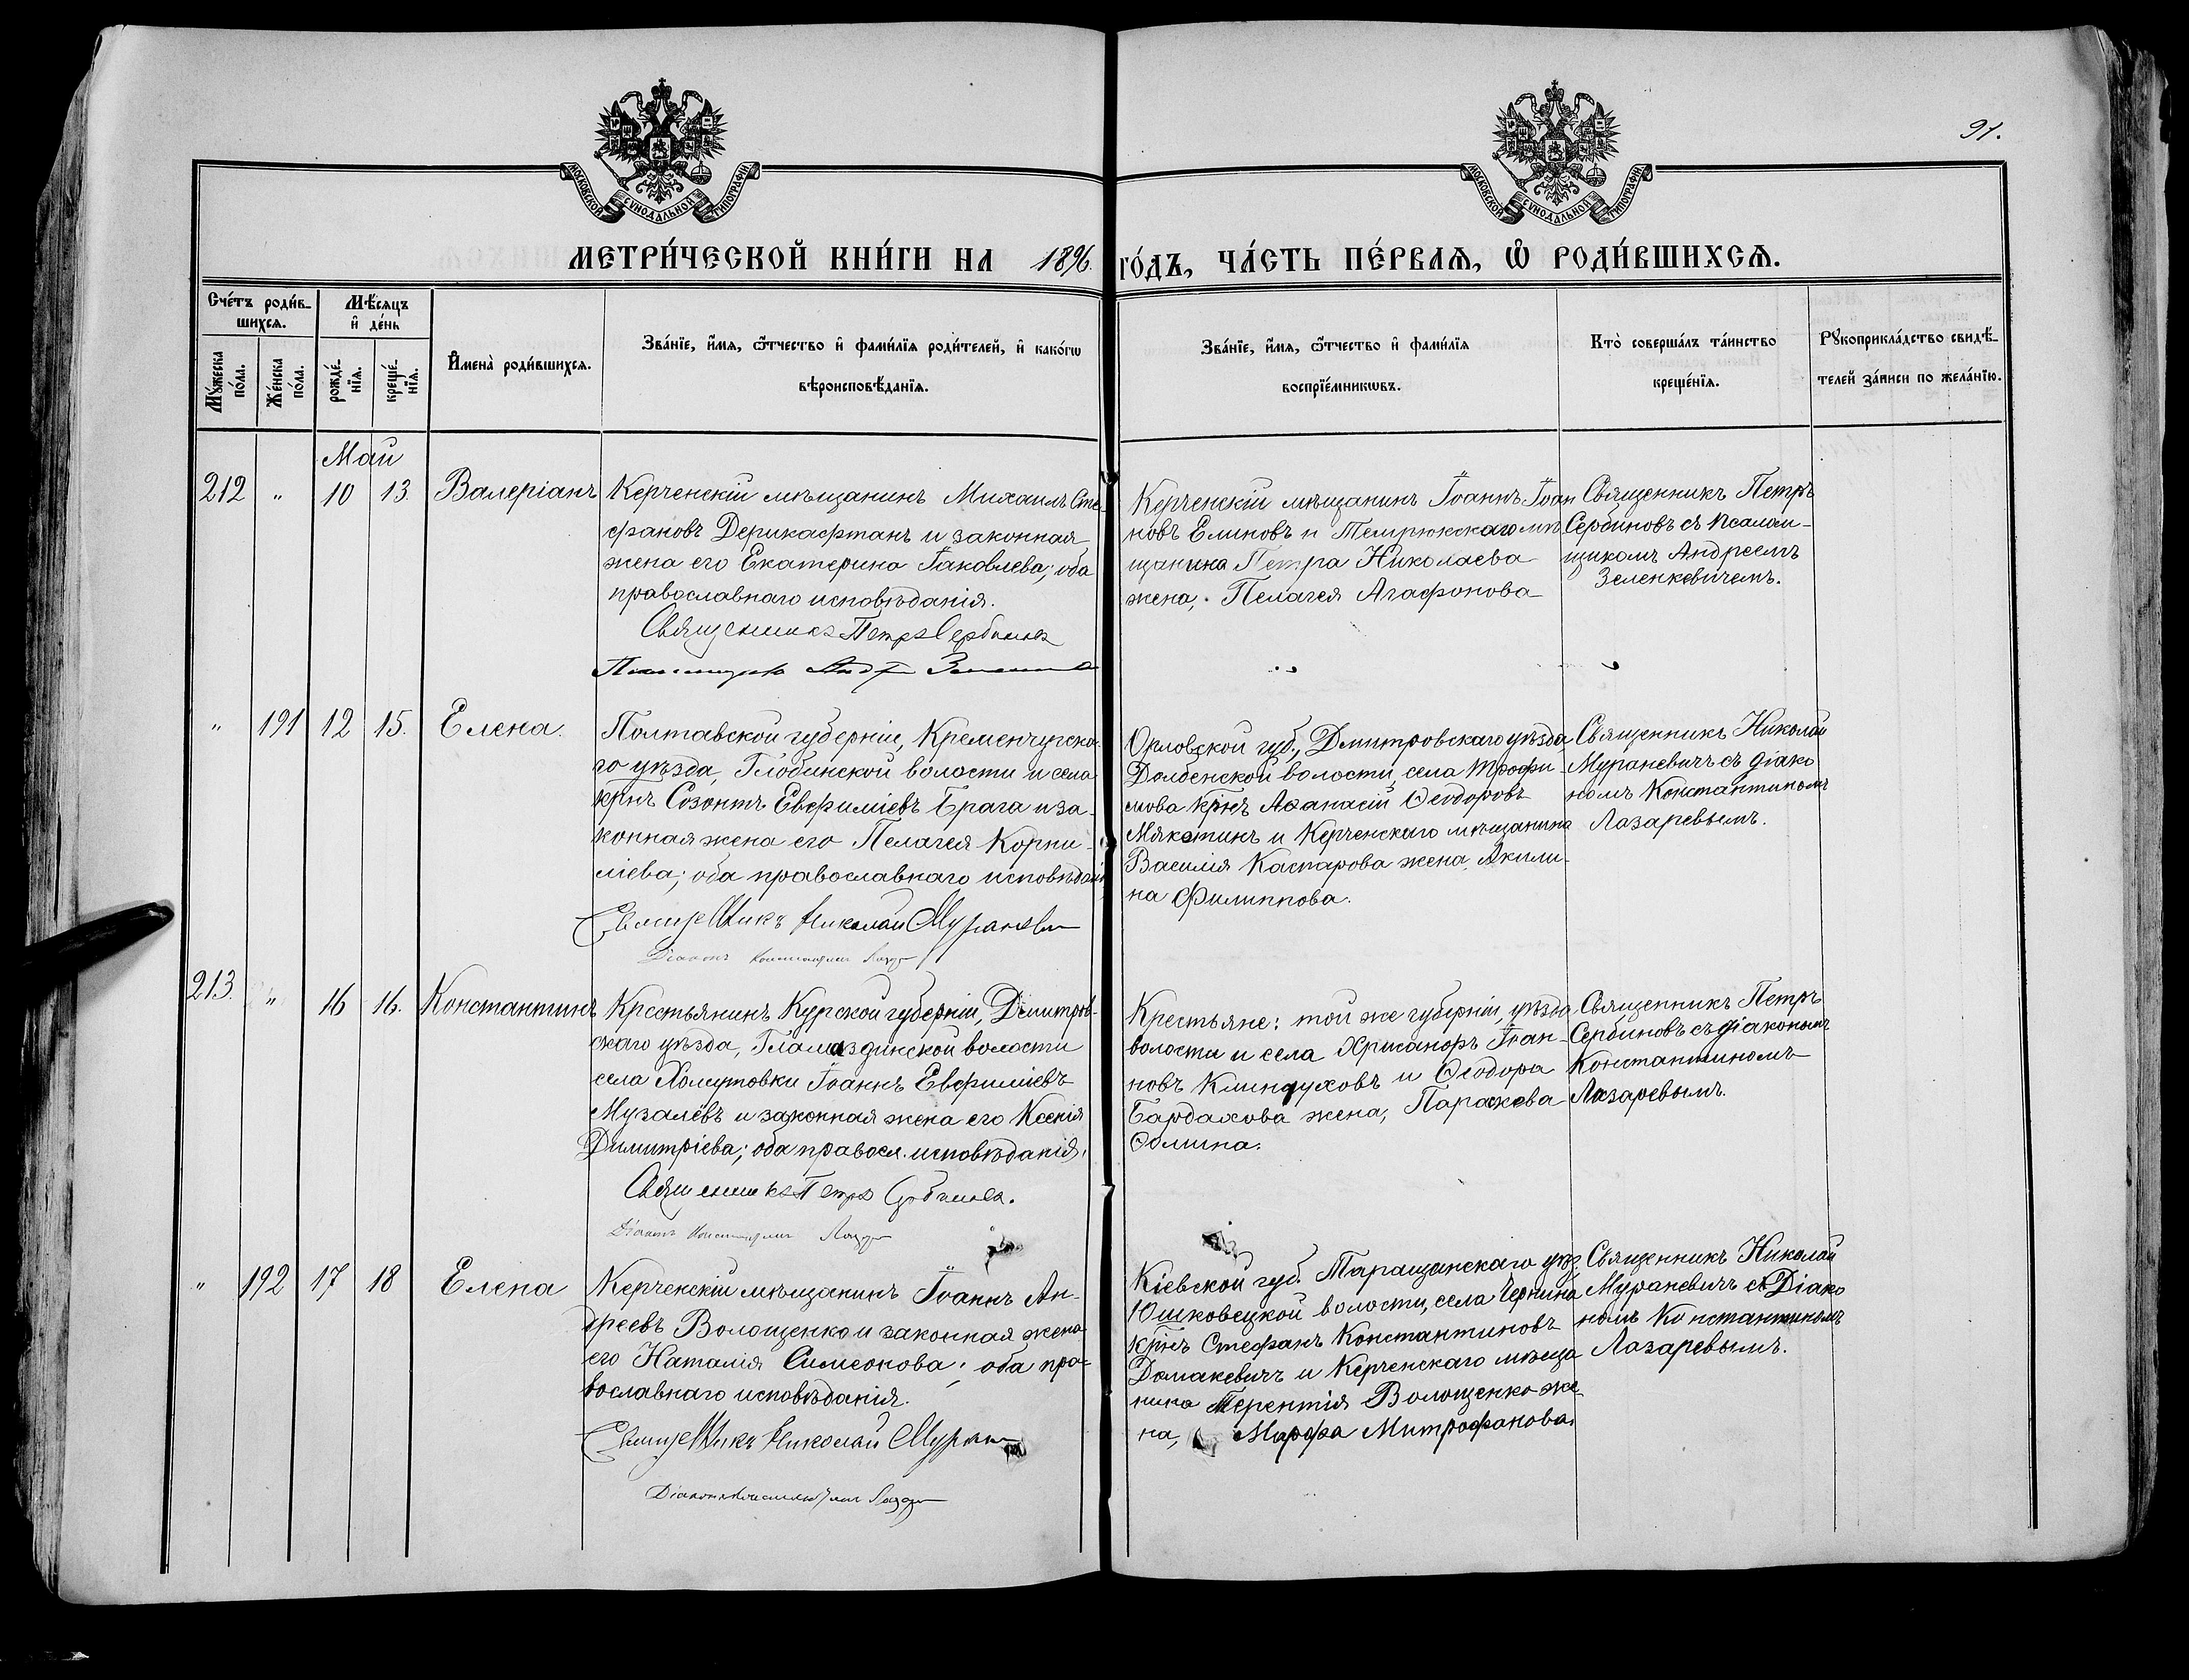 91.
МОСКОВСКОЙ СѴНОДАЛЬНОЙ ТИПОГРАФІИ
МОСКОВСКОЙ СѴНОДАЛЬНОЙ ТИПОГРАФІИ
МЕТРИ́ЧЕСКОЙ КНИ́ГИ НА 1896. ГО́ДЪ, ЧА́СТЬ ПЕ́РВАѦ, Ѡ҆ РОДИ́ВШИХСѦ.
Сче́тъ роди́в-
шихсѧ.
Мꙋ́жеска по́ла.
Же́нска по́ла.
Мѣ́сѧцъ
и҆ де́нь
рожде́-
нїѧ.
креще́-
нїѧ.
И҆мена̀ роди́вшихсѧ.
Зва́нїе, и҆́мѧ, ѻ҆́тчество и҆ фами́лїѧ роди́телей, и҆ како́гѡ
вѣроисповѣ́данїѧ.
Зва́нїе, и҆́мѧ, ѻ҆́тчество и҆ фами́лїѧ
воспрїе́мникѡвъ.
Кто̀ соверша́лъ та́инство
креще́нїѧ.
Рꙋкоприкла́дство свидѣ́-
телей за́писи по жела́нїю.
Май
212 " 10 13 Валеріанъ
Керченскій мѣщанинъ Михаилъ Сте-
фановъ Дерикафтанъ и законная
жена его Екатерина Іаковлева; оба
православнаго исповѣданія.
Священникъ Петръ Сербиновъ
Керченскій мѣщанинъ Іоаннъ Іоан
новъ Елиновъ и Темрюкскаго мѣ
щанина Петра Николаева
жена, Пелагея Агафонова
Священникъ Петръ
Сербиновъ съ псалом-
щикомъ Андреемъ
Зеленкевичемъ.
" 191 12 15. Елена.
Полтавской губерніи, Кременчугска-
го уѣзда, Глобинской волости и села
крнъ Созонтъ Евфиміевъ Брага и за-
конная жена его Пелагея Корни-
ліева; оба православнаго исповѣдані
Священникъ Николай Мураневи
Діаконъ Константинъ Лазар
Орловской губ., Дмитровскаго уѣзда
Долбенской волости, села Трофи-
мова крнъ Аѳанасій Ѳеодоровъ
Мякотинъ и Керченскаго мѣщанина
Василія Каспарова жена, Акили-
на Филиппова.
Священникъ Николай
Мураневичъ съ діако
номъ Константиномъ
Лазаревымъ.
213. " 16 16. Константинъ
Крестьянинъ Курской губерніи, Дмитров-
скаго уѣзда, Гламаздинской волости
села Хомутовки Іоаннъ Евфиміевъ
Музалёвъ и законная жена его Ксенія
Димитріева; оба правосл. исповѣданія.
Священникъ Петръ Сербиновъ.
Діаконъ Константинъ Лазар
Крестьяне: той же губерніи, уѣзда
волости и села Хрисанфъ Іоан-
новъ Клиндуховъ и Ѳеодора
Бардахова жена, Параскева
Ѳомина.
Священникъ Петръ
Сербиновъ съ діакономъ
Константиномъ
Лазаревымъ.
" 192 17 18 Елена
Керченскій мѣщанинъ Іоаннъ Ан-
дреевъ Волощенко и законная жена
его Наталія Симеонова; оба пра-
вославнаго исповѣданія.
Священникъ Николай Муран
Діаконъ Константинъ Лазар
Кіевской губ. Таращанскаго уѣз.
Юшковецкой волости, села Чернина
крнъ Стефанъ Константиновъ
Домакевичъ и Керченскаго мѣща
нина Терентія Волощенко же-
на, Марфа Митрофанова.
Священникъ Николай
Мураневичъ съ Діако
номъ Константиномъ
Лазаревымъ.